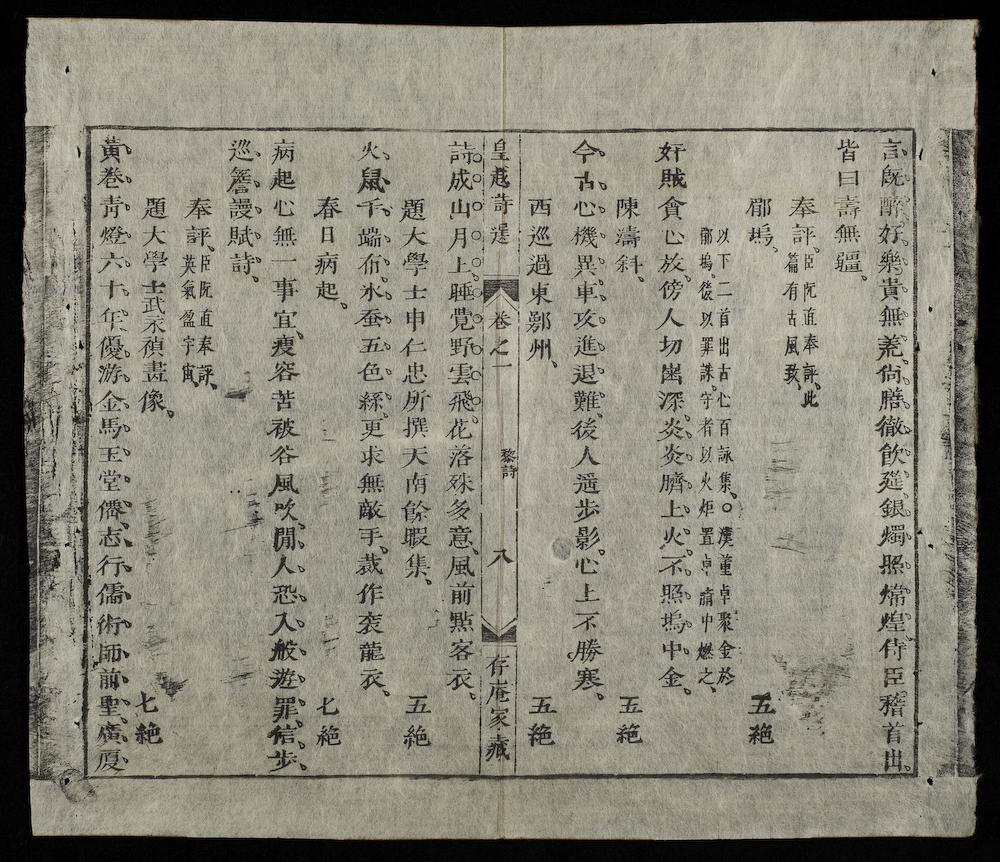 言旣醉好樂貴無荒尙膳徹飮筵銀燭照熀煌侍臣稽首出
皆曰壽無疆
奉評臣阮直奉評此
篇有古風致
郿塢 五絶
以下二首出古心百詠集○漢董卓聚金於
郿塢後以罪誅守者以火炬置卓臍中燃之
奸賊貪心放傍人切齒深炎炎臍上火不照塢中金
陳濤斜 五絶
今古心機異車攻進退難後人遥步影心上不勝寒
西巡過東鄭州 五絶
皇越詩選 卷之一 黎詩 八 存庵家藏
詩成山月上睡覺野雲飛花落殊多意風前點客衣
題大學士申仁忠所撰天南餘暇集 五絶
火鼠千端布氷蚕五色絲更求無敵手裁作衮龍衣
春日病起 七絶
病起心無一事宜瘦容苦被谷風吹閒人恐入般遊罪信步
巡簷謾賦詩
奉評臣阮直奉評
英氣盈宇宙
題大學士武永禎畫像 七絶
黃巻靑燈六十年優游金馬玉堂僊志行儒術師前聖廣廈